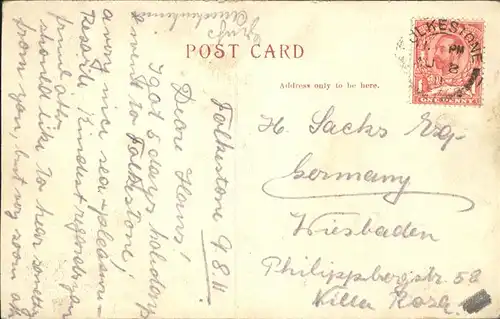 POST CARD
Address only to be here.
FOLKESTONE
PM
ONE PENNY
Folkestone 9.8.11.
Dear Hans!
I got 5 days holidays
& went to Folkestone,
a very nice sea-pleasure-
Resort. Kindest regards your
friend
should like to hear something
from you, but very soon
H. Sacks Esq.
Germany
Wiesbaden
Philippbergstr. 58
Villa Rosa